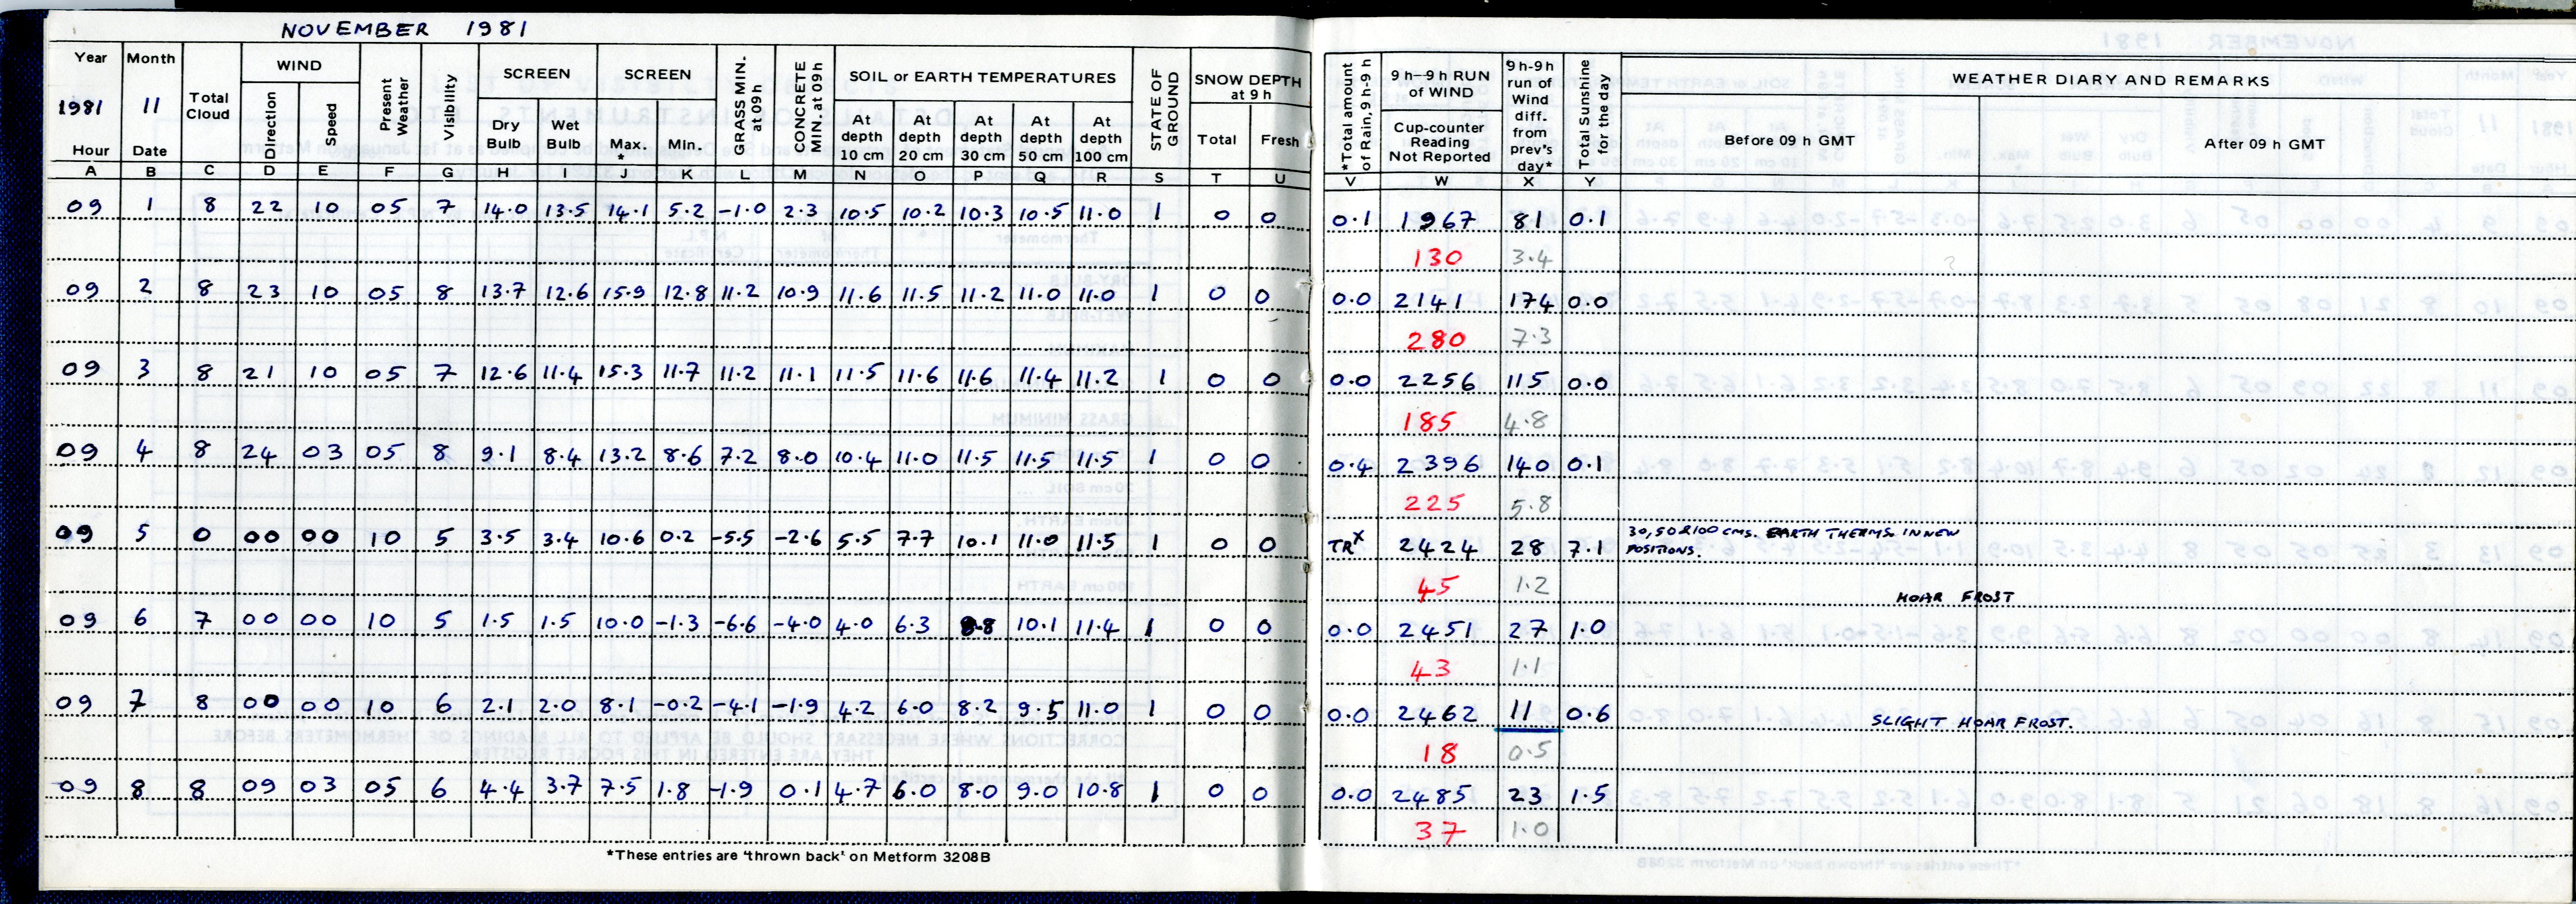 NOVEMBER 1981
Year Month Total Cloud WIND Present Weather Visibility SCREEN SCREEN GRASS MIN. at 09h CONCRETE MIN. at 09h SOIL or EARTH TEMPERATURES STATE OF GROUND SNOW DEPTH at 9 h *Total amount of Rain, 9h-9 h 9 h–9 h RUN of WIND 9 h-9h run of Wind diff. from prev's day* Total Sunshine for the day WEATHER DIARY AND REMARKS
1981 11 Direction Speed Dry Bulb Wet Bulb Max. * Min. At depth 10 cm At depth 20 cm At depth 30 cm At depth 50 cm At depth 100 cm Total Fresh Cup-counter Reading Not Reported Before 09 h GMT After 09 h GMT
Hour Date
A B C D E F G H I J K L M N O P Q R S T U V W X Y
09 1 8 22 10 05 7 14.0 13.5 14.1 5.2 -1.0 2.3 10.5 10.2 10.3 10.5 11.0 1 0 0 0.1 1967 81 0.1
130 3.4
09 2 8 23 10 05 8 13.7 12.6 15.9 12.8 11.2 10.9 11.6 11.5 11.2 11.0 11.0 1 0 0 0.0 2141 174 0.0
280 7.3
09 3 8 21 10 05 7 12.6 11.4 15.3 11.7 11.2 11.1 11.5 11.6 11.6 11.4 11.2 1 0 0 0.0 2256 115 0.0
185 4.8
09 4 8 24 03 05 8 9.1 8.4 13.2 8.6 7.2 8.0 10.4 11.0 11.5 11.5 11.5 1 0 0 0.4 2396 140 0.1
225 5.8
09 5 0 00 00 10 5 3.5 3.4 10.6 0.2 -5.5 -2.6 5.5 7.7 10.1 11.0 11.5 1 0 0 TRx 2424 28 7.1 30,50&100 CMS. EARTH THERMS IN NEW
POSITIONS.
45 1.2
HOAR FROST
09 6 7 00 00 10 5 1.5 1.5 10.0 -1.3 -6.6 -4.0 4.0 6.3 8.8 10.1 11.4 1 0 0 0.0 2451 27 1.0
43 1.1
09 7 8 00 00 10 6 2.1 2.0 8.1 -0.2 -4.1 -1.9 4.2 6.0 8.2 9.5 11.0 1 0 0 0.0 2462 11 0.6 SLIGHT HOAR FROST.
18 0.5
09 8 8 09 03 05 6 4.4 3.7 7.5 1.8 -1.9 0.1 4.7 6.0 8.0 9.0 10.8 1 0 0 0.0 2485 23 1.5
37 1.0
*These entries are 'thrown back' on Metform 3208B